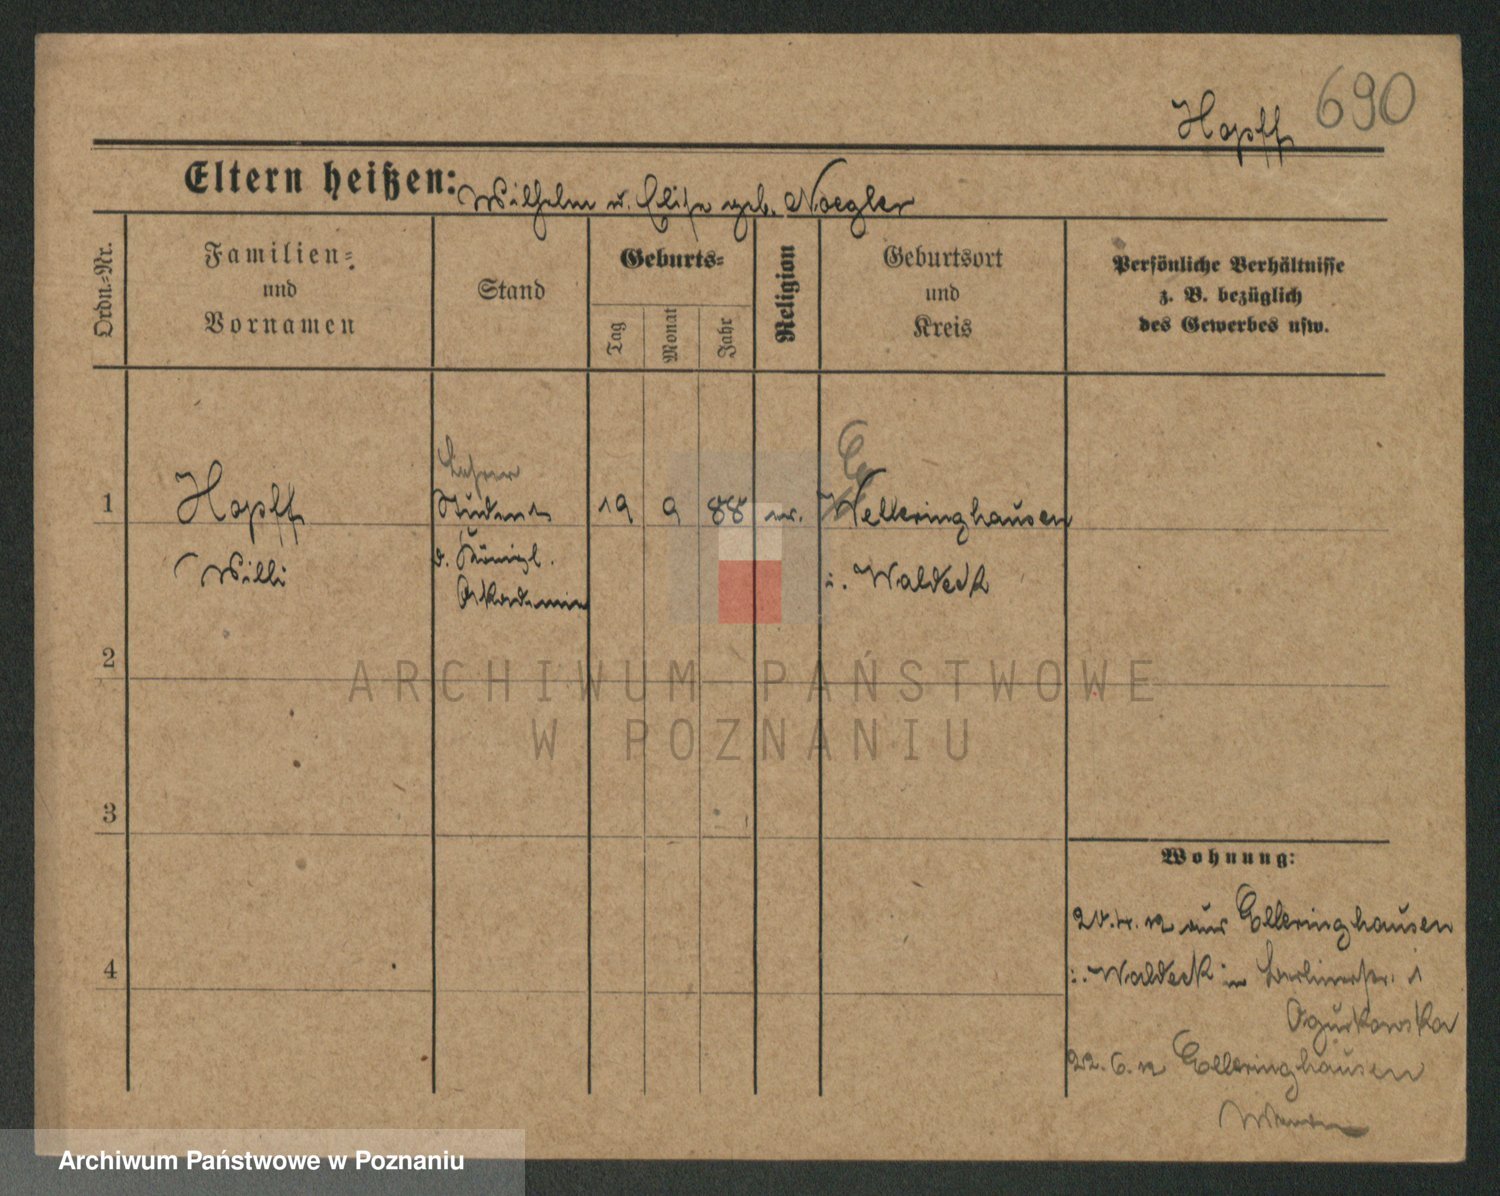 690
Hopff
Eltern heißen: Wilhelm u. Elise geb. Noegler
Ordn.=Nr.
Familien=
und
Vornamen
Stand
Geburts=
Tag
Monat
Jahr
Religion
Geburtsort
und
Kreis
Persönliche Verhältnisse
z. B. bezüglich
des Gewerbes usw.
Lehrer
1
Hopff
Student
19
9
88
ev.
Welleringhausen
Willi
d. Königl.
Akademie
i. Waldeck
2
3
4
Wohnung:
20.4.12 aus Elleringhausen
i. Waldeck in Berlinerstr. 1
Ogurkowska
22.6.12 Elleringhausen
ARCHIWUM PAŃSTWOWE
W POZNANIU
Archiwum Państwowe w Poznaniu